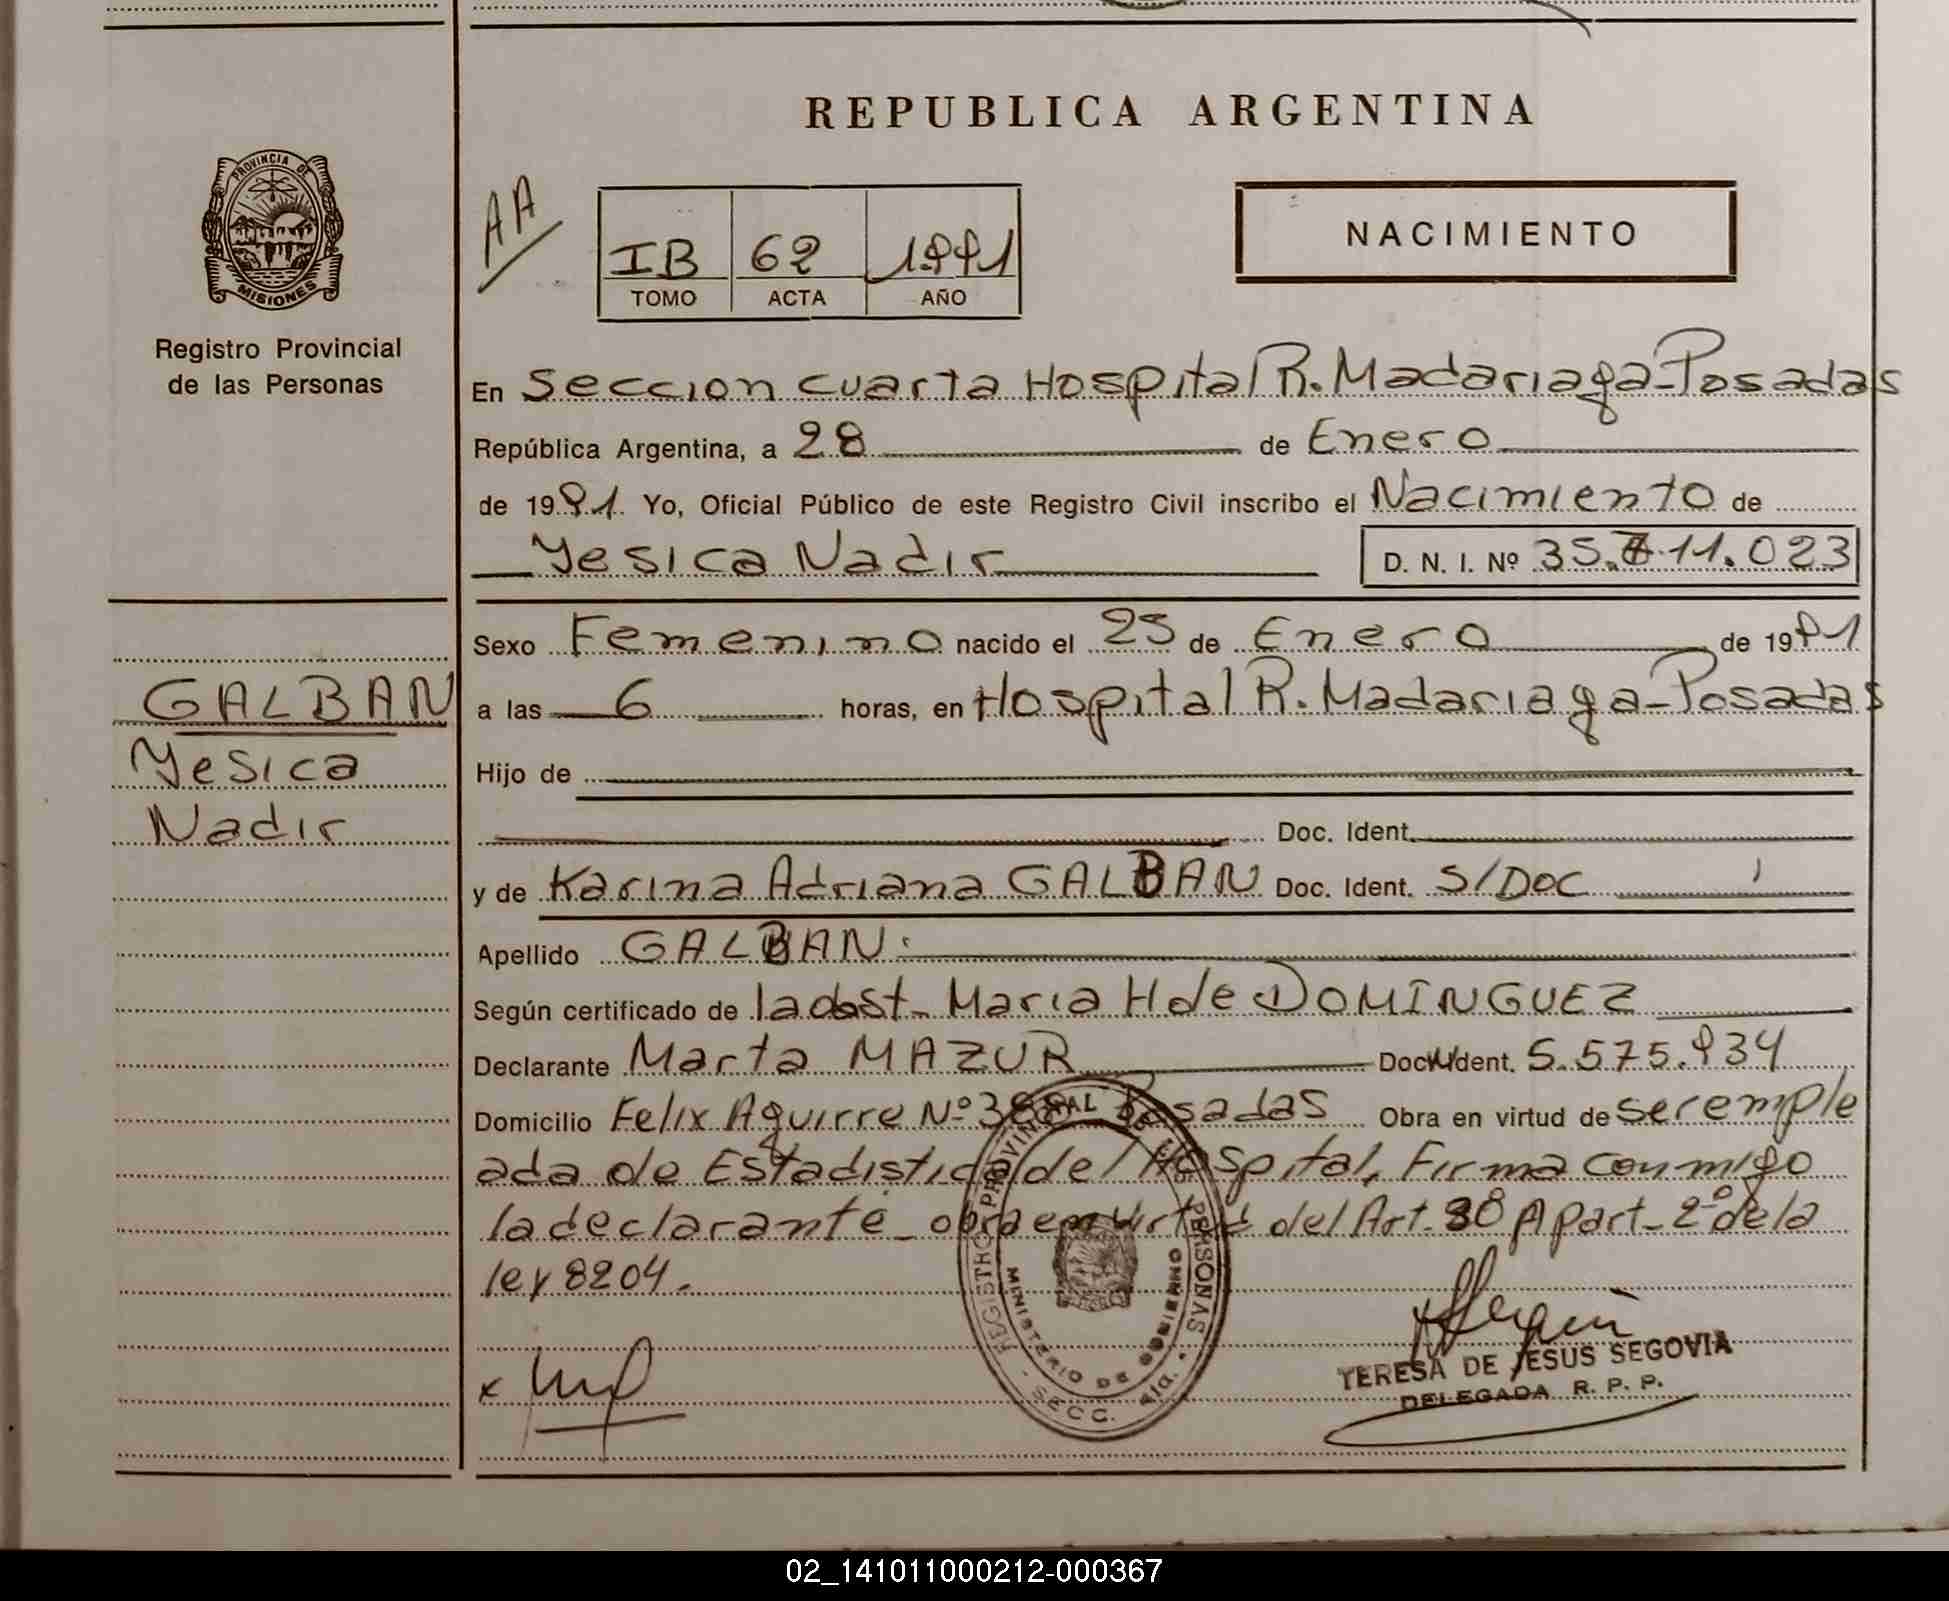 REPUBLICA ARGENTINA
PROVINCIA DE
MISIONES
Registro Provincial
de las Personas
AA
IB 62 1991
TOMO ACTA AÑO
NACIMIENTO
En Seccion cuarta Hospital R. Madariaga - Posadas
República Argentina, a 28 de Enero
de 1991 Yo, Oficial Público de este Registro Civil inscribo el Nacimiento de
Yesica Nadir D. N. I. Nº 35.711.023
Sexo Femenino nacido el 25 de Enero de 1991
GALBAN
Yesica
Nadir
a las 6 horas, en Hospital R. Madariaga - Posadas
Hijo de
Doc. Ident.
y de Karina Adriana GALBAN Doc. Ident. S/DOC
Apellido GALBAN.
Según certificado de la obst - Maria H de DOMINGUEZ
Declarante Marta MAZUR Doc. Ident. 5.575.934
Domicilio Felix Aguirre Nº Posadas Obra en virtud de ser emple
ada de Estadistica del Hospital, Firma conmigo
la declarante - obra en virtud del Art. 30 Apart - 2º de la
ley 8204.
REGISTRO PROVINCIAL DE LAS PERSONAS
MINISTERIO DE GOBIERNO
SECC. 4ta.
TERESA DE JESUS SEGOVIA
DELEGADA R. P. P.
02_141011000212-000367